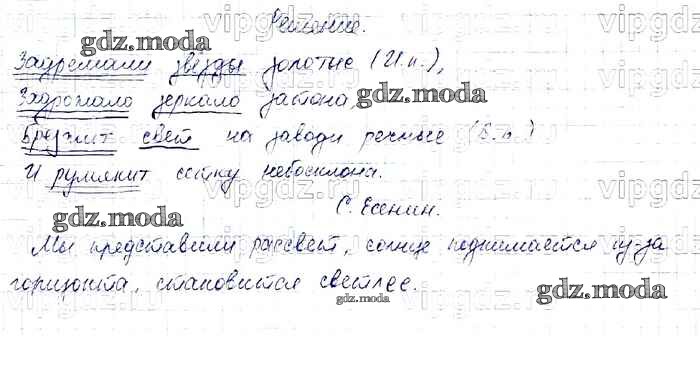 Решение.
Задремали звёзды золотые (И.п.),
Задрожало зеркало затона,
Брезжит свет на заводи речные (В.п.)
И румянит сетку небосклона.
С. Есенин.
Мы представили рассвет, солнце поднимается из-за
горизонта, становится светлее.
gdz.moda
gdz.moda
gdz.moda
gdz.moda
gdz.moda